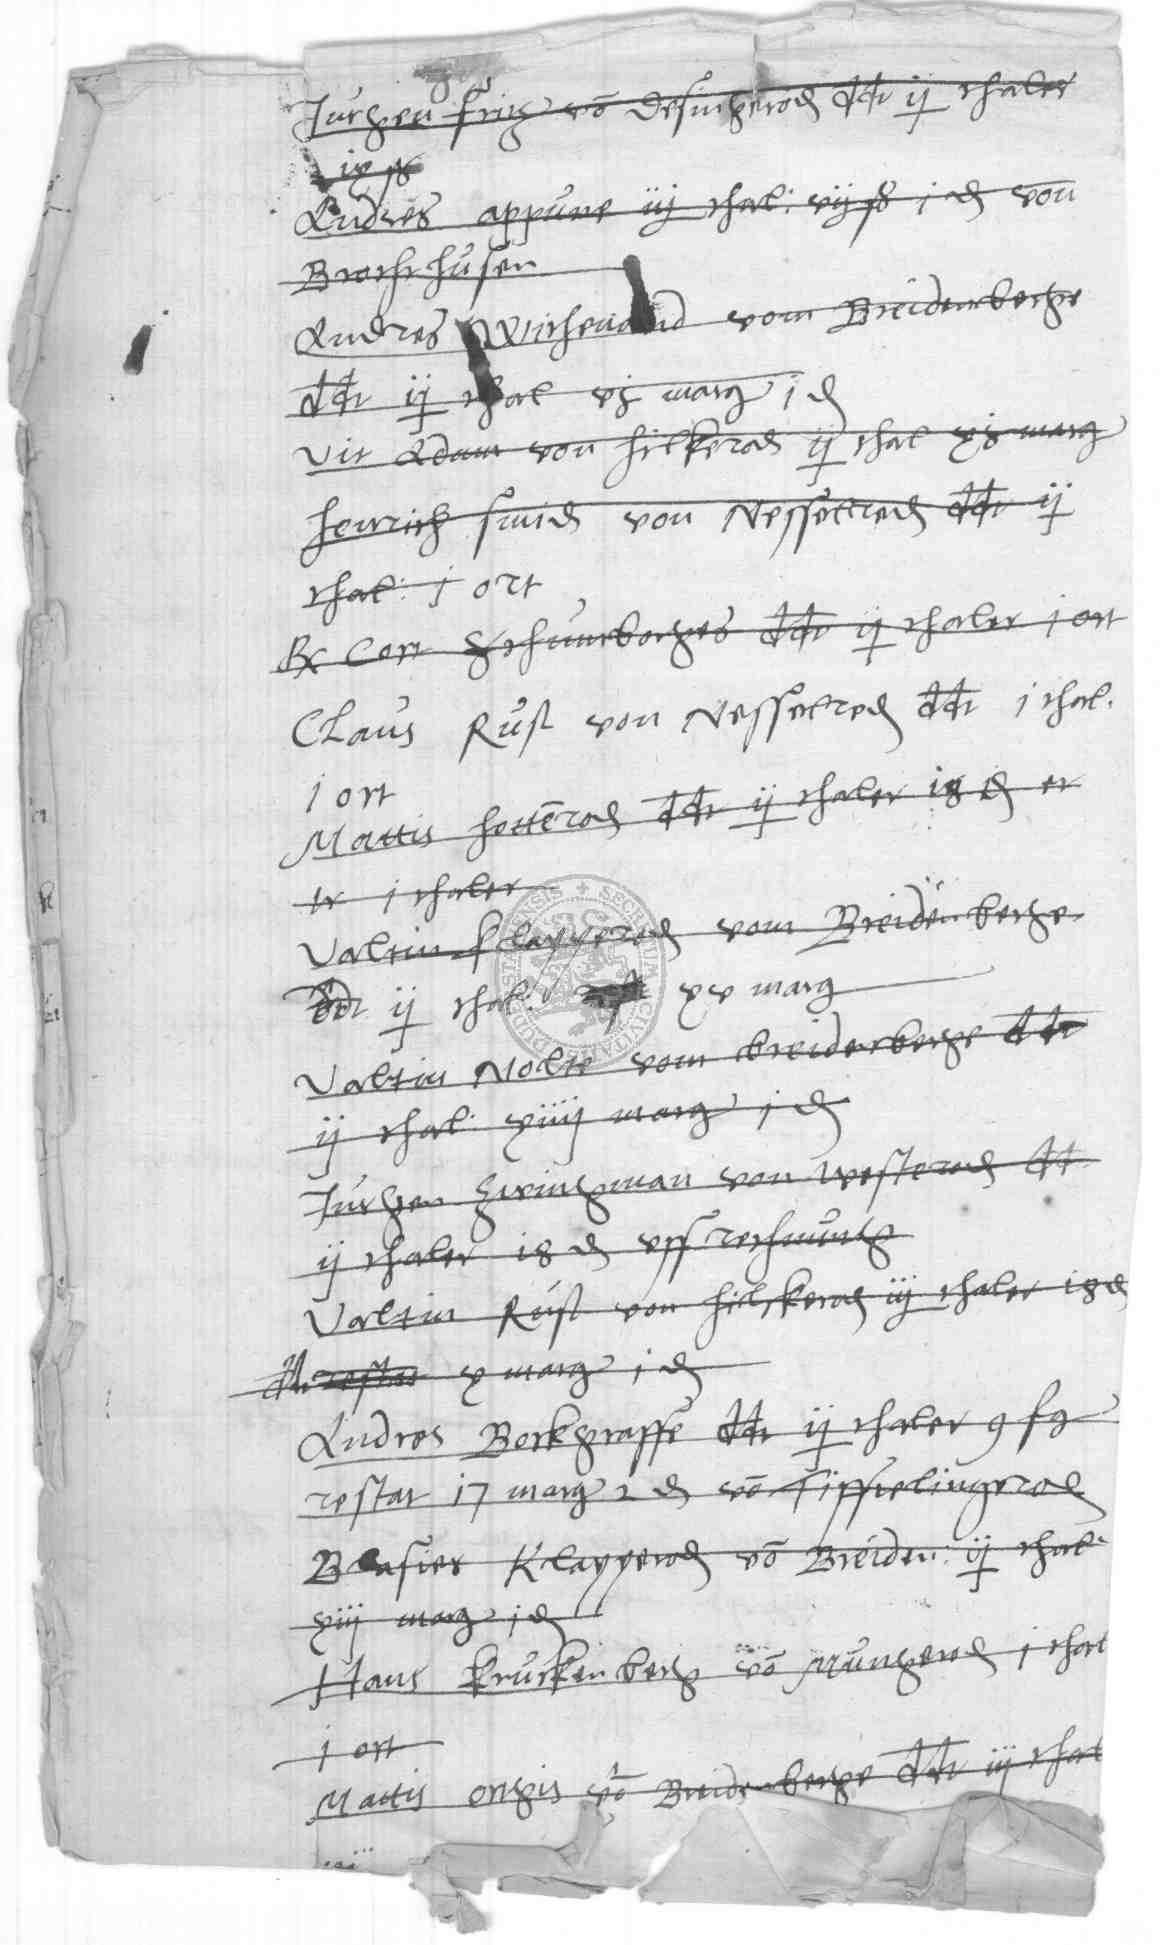 Jurgen fritz vō Desingerod ddt ij thaler
ix ß
Andres appune iij thal: vij ß j d von
Brochthusen
Andres Withenand vom Breidenberge
ddt ij thal vj marg j d
Vit Adam von hilkerod ij thal xj marg
henrich smid von Nesselred ddt ij
thal: j ort
Cort ddt ij thaler j ort
Claus Rust von Nesselred ddt j thal.
j ort
Mattis hottērod ddt ij thaler d er
j thaler
Valtin klapperod vom Breidenberge
ddt ij thal: xv marg
Valtin Nolte vom breidenberge ddt
ij thal: xiiij marg j d
Jurgen Zwingman von westerod ddt
ij thaler 18 d uff rechnung
Valtin Rust von hilckerod iij thaler 18 d
restat x marg j d
Andres Borkgraffe ddt ij thaler 9 ß 9
restat 17 marg 2 d vō Tifftelingerod
Blasies Klapperod vō Breiden: ij thal:
xiij marg j d
Hans kruckenberg vō Mungerod j thal
j ort
Mattis ongis vō Breidenberge ddt iij thal